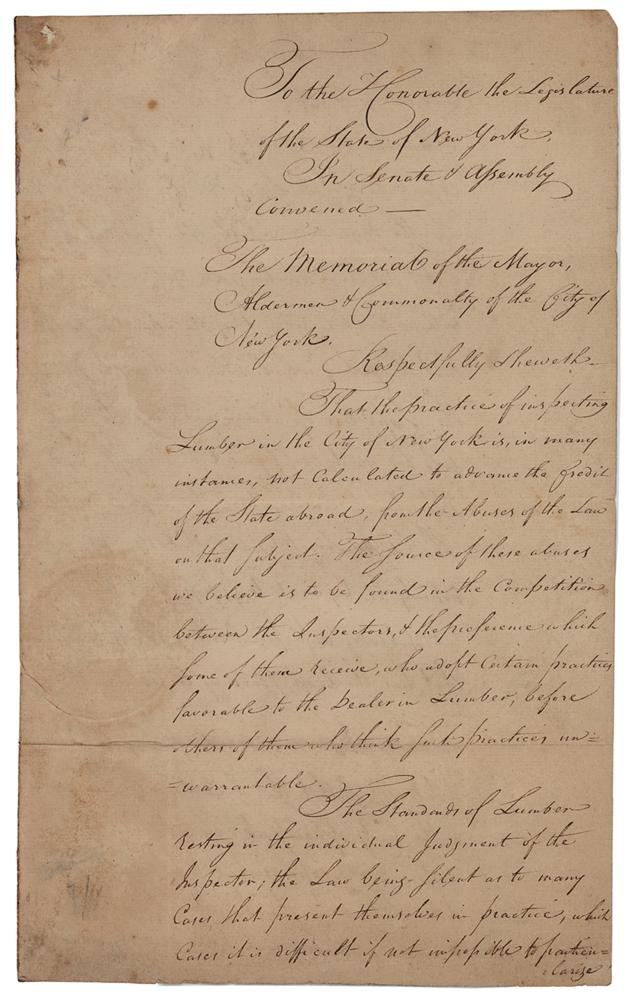 To the Honorable the Legislature
of the State of New York,
In Senate & Assembly
Convened —
The Memorial of the Mayor,
Aldermen & Commonalty of the City of
New York.
Respectfully Sheweth —
That the practice of inspecting
Lumber in the City of New York is, in many
instances, not Calculated to advance the Credit
of the State abroad, from the Abuses of the Law
on that subject. The Source of these abuses
we believe is to be found in the Competition
between the Inspectors, & the preference which
some of them receive, who adopt Certain practices
favorable to the Dealer in Lumber, before
others of them who think such practices un=
=warrantable.
The Standards of Lumber
resting in the individual Judgment of the
Inspector; the Law being silent as to many
Cases that present themselves in practice, which
Cases it is difficult if not impossible to particu=
=larize